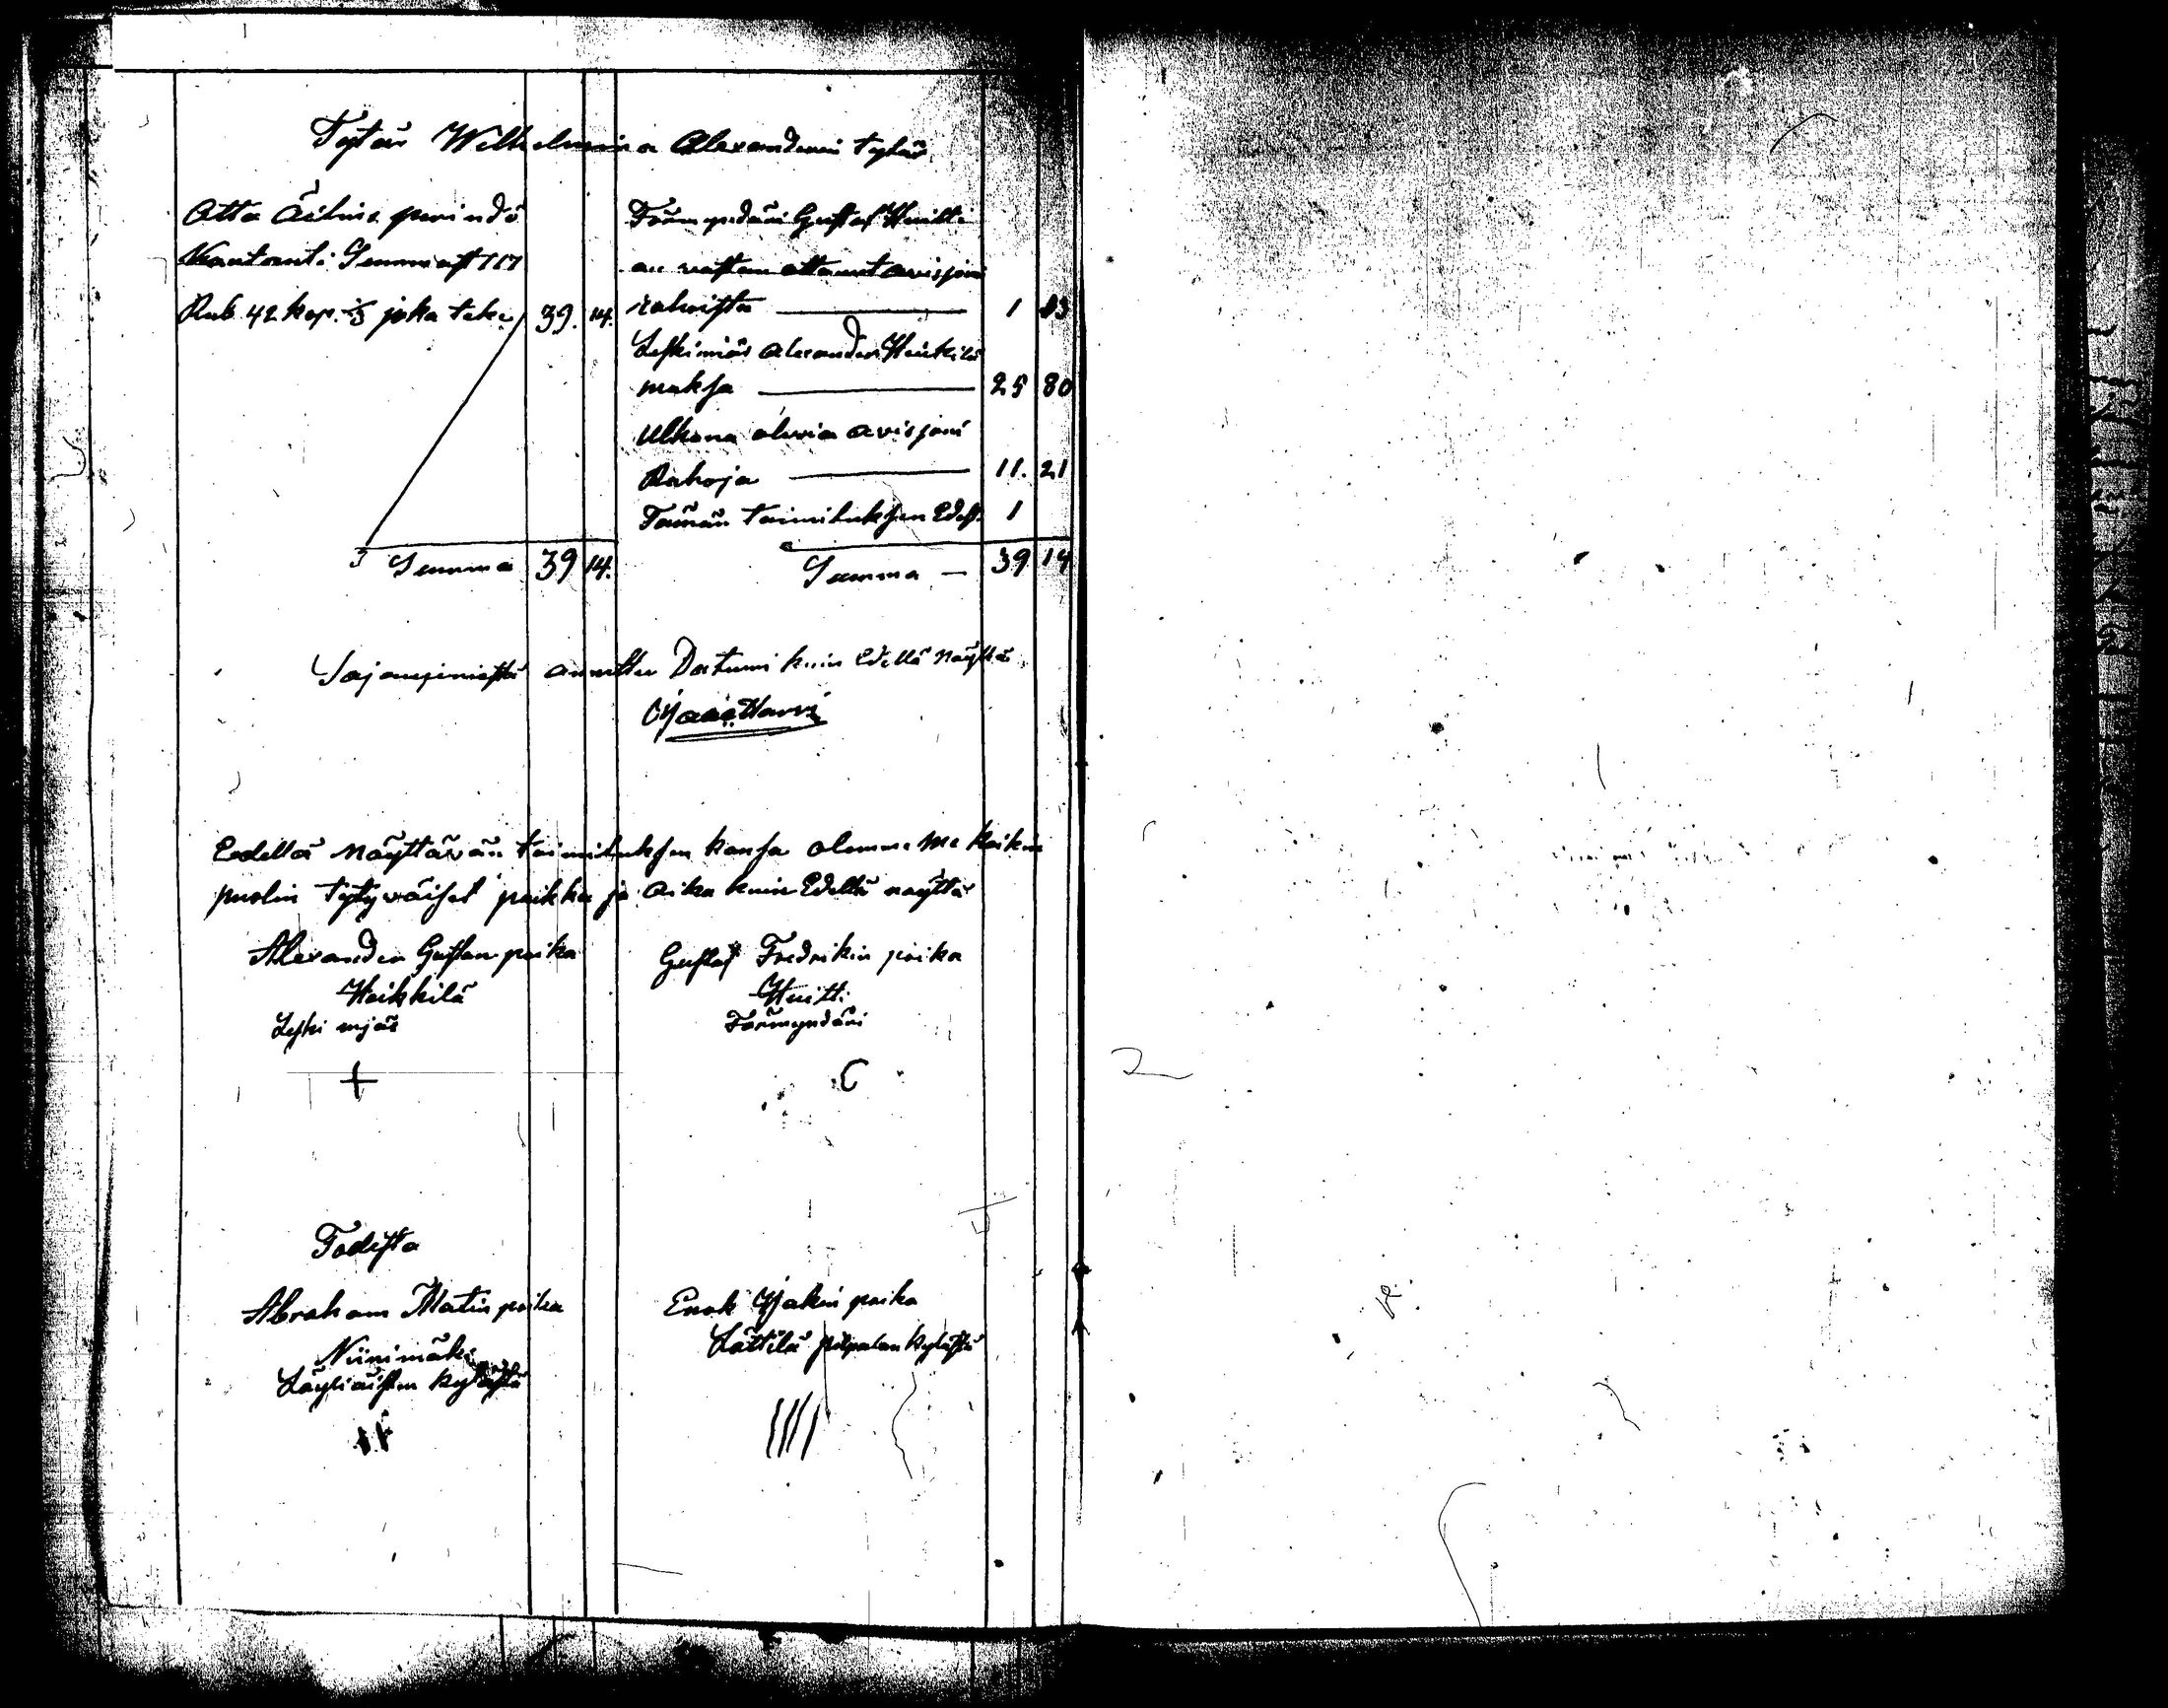 Tytär Wilhelmina Alexanderin tytär
Otta Äitins perindö
Kautont: Summast 117
Rub. 42 kop. 1/3 joka teke 39. 14.
Förmyndäri Gustaf Huitti
on vastan ottanut avisjoni
rahoista 1 13
Leskimiäs Alexander Heikkilä
maksa 25 80
Ulkona olevia avisjoni
Rahoja 11. 21
Tämän toimituksen Edest 1
Summa 39 14.
Summa — 39 14
annettu Datumi kuin Edellä näyttä
Edellä näyttävän toimituksen kansa olemme me kaikin
puolin tytyväiset paikka ja aika kuin Edellä näyttä
Alexander Gustan poika
Heikkilä
Leski mjäs
+
Gustaf Fredrikin poika
Huitti
Förmyndäri
Todista
Abraham Matin poika
Niinimäki
Löyliäisten kylästä
Enok Isakin poika
Lättilä pilpalan kylästä
////